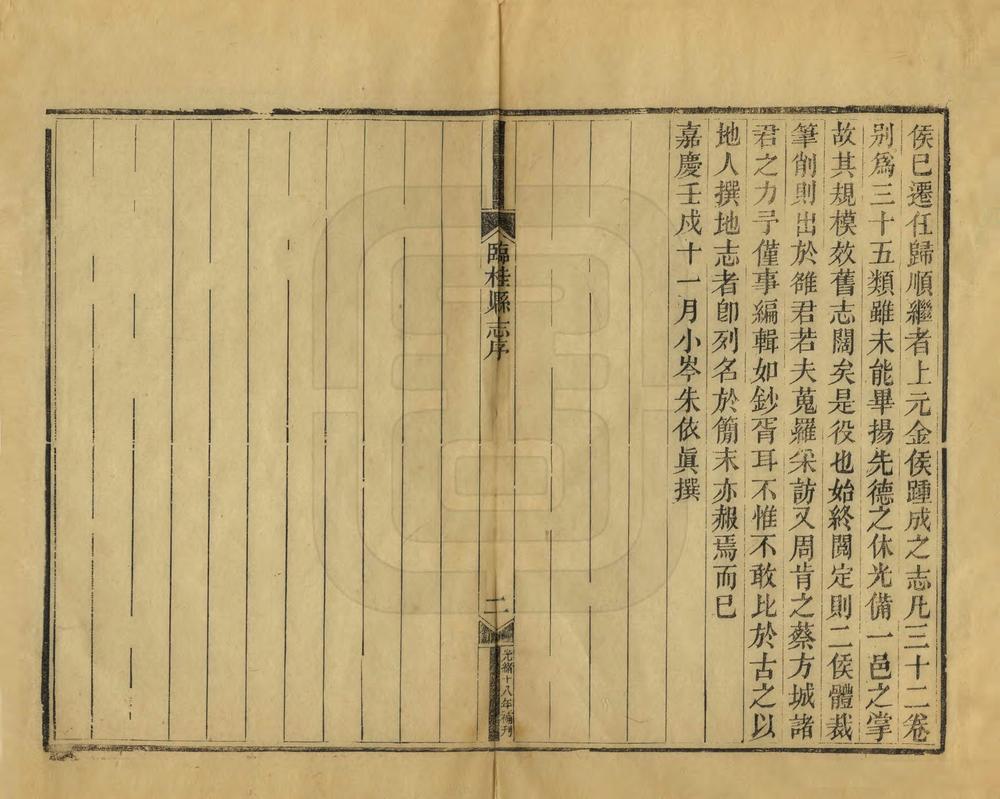 侯已遷任歸順繼者上元金侯踵成之志凡三十二卷
别爲三十五類雖未能畢揚先德之休光備一邑之掌
故其規模效舊志闊矣是役也始終閱定則二侯體裁
筆削則出於雒君若夫蒐羅采訪又周肯之蔡方城諸
君之力予僅事編輯如鈔胥耳不惟不敢比於古之以
地人撰地志者卽列名於簡末亦赧焉而已
嘉慶壬戌十一月小岑朱依眞撰
臨桂縣志序
二
光緒十八年補刊